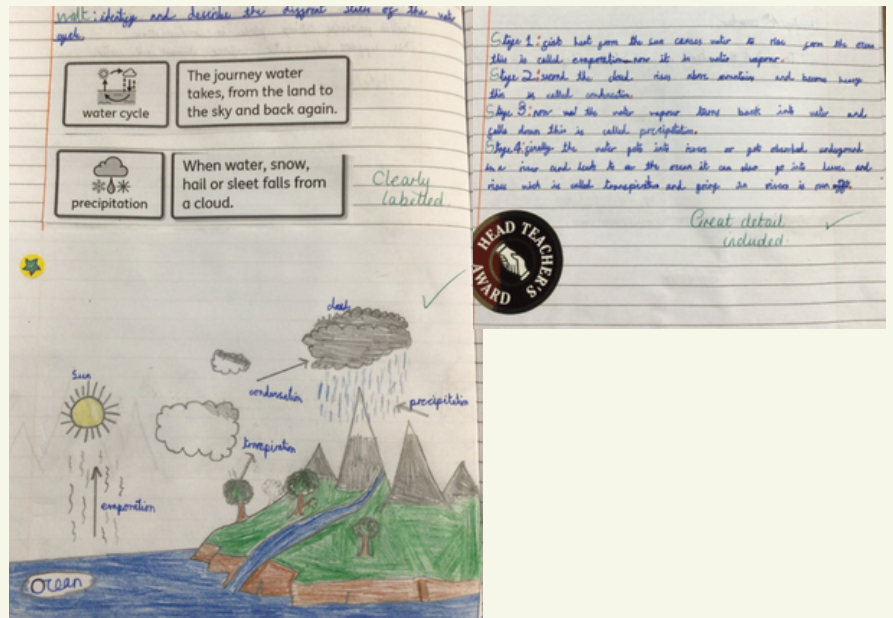 walt: identify and describe the different states of the water
cycle.
water cycle
The journey water
takes, from the land to
the sky and back again.
precipitation
When water, snow,
hail or sleet falls from
a cloud.
Clearly
labelled.
clouds
sun
condensation
precipitation
transpiration
evaporation
Ocean
Stage 1: first heat from the sun causes water to rise from the ocean
this is called evaporation now it is water vapour.
Stage 2: second the cloud rises above mountain and become
this is called condensation.
Stage 3: now the water vapour turns back into water and
falls down this is called precipitation.
Stage 4: finally the water gets into rivers or gets absorbed underground
in a river and to the ocean it can also go into leaves and
rises wich is called transpiration and going in rivers is run off.
Great detail
included.
HEAD TEACHER'S
AWARD